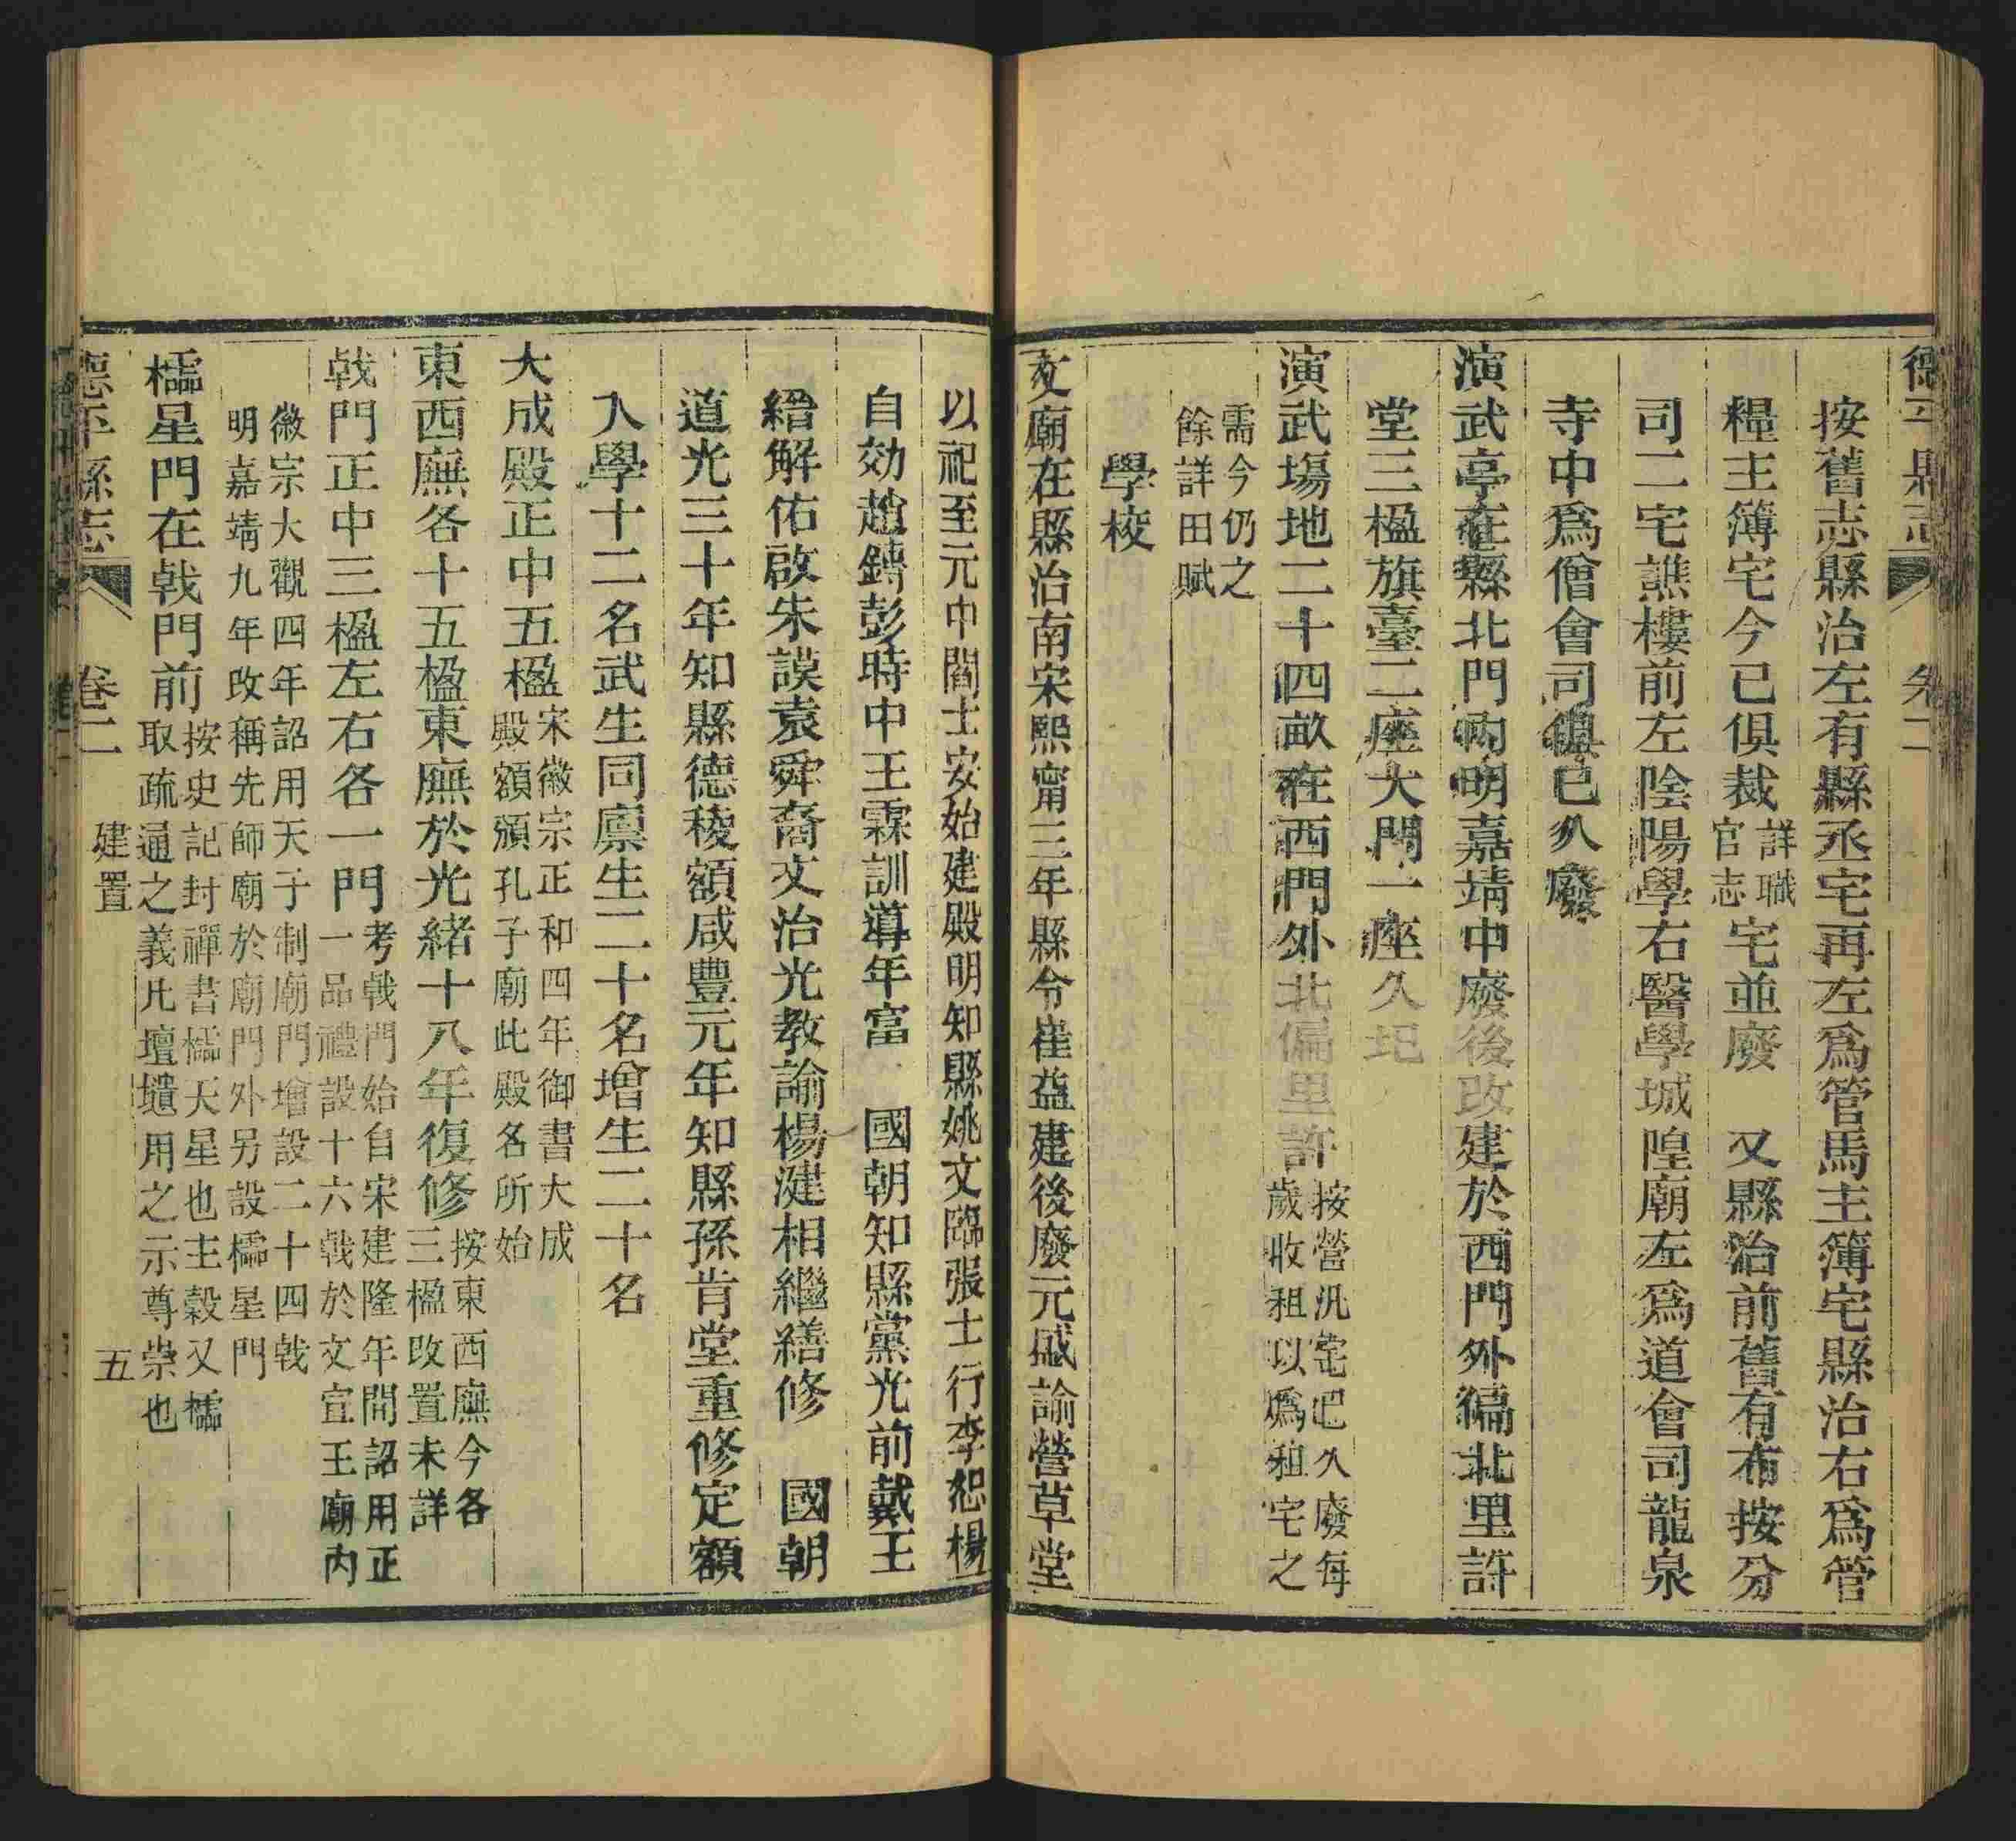 德平縣志 卷二
按舊志縣治左有縣丞宅再左爲管馬主簿宅縣治右爲管
糧主簿宅今已俱裁詳職官志宅並廢　又縣治前舊有布按分
司二宅譙樓前左陰陽學右醫學城隍廟左爲道會司龍泉
寺中爲僧會司俱已久廢
演武亭在縣北門內明嘉靖中廢後改建於西門外徧北里許
堂三楹旗臺二座大門一座久圮
演武場地二十四畝在西門外北偏里許按營汛宅圯久廢每
歲收租以爲租宅之
需今仍之
餘詳田賦
學校
文廟在縣治南宋熙甯三年縣令崔益建後廢元戚諭營草堂
以祀至元中閻士安始建殿明知縣姚文臨張士行李恕楊
自効趙鏄彭時中王霖訓導年富　國朝知縣黨光前戴王
縉解佑啟朱謨袁舜裔文治光教諭楊湕相繼繕修　國朝
道光三十年知縣德稜額咸豐元年知縣孫肯堂重修定額
入學十二名武生同廩生二十名增生二十名
大成殿正中五楹宋徽宗正和四年御書大成
殿額頒孔子廟此殿名所始
東西廡各十五楹東廡於光緒十八年復修按東西廡今各
三楹改置未詳
戟門正中三楹左右各一門考戟門始自宋建隆年間詔用正
一品禮設十六戟於文宣王廟內
徽宗大觀四年詔用天子制廟門增設二十四戟
明嘉靖九年改稱先師廟於廟門外另設櫺星門
櫺星門在戟門前按史記封禪書櫺天星也主穀又櫺
取疏通之義凡壇壝用之示尊崇也
德平縣志 卷二 建置 五